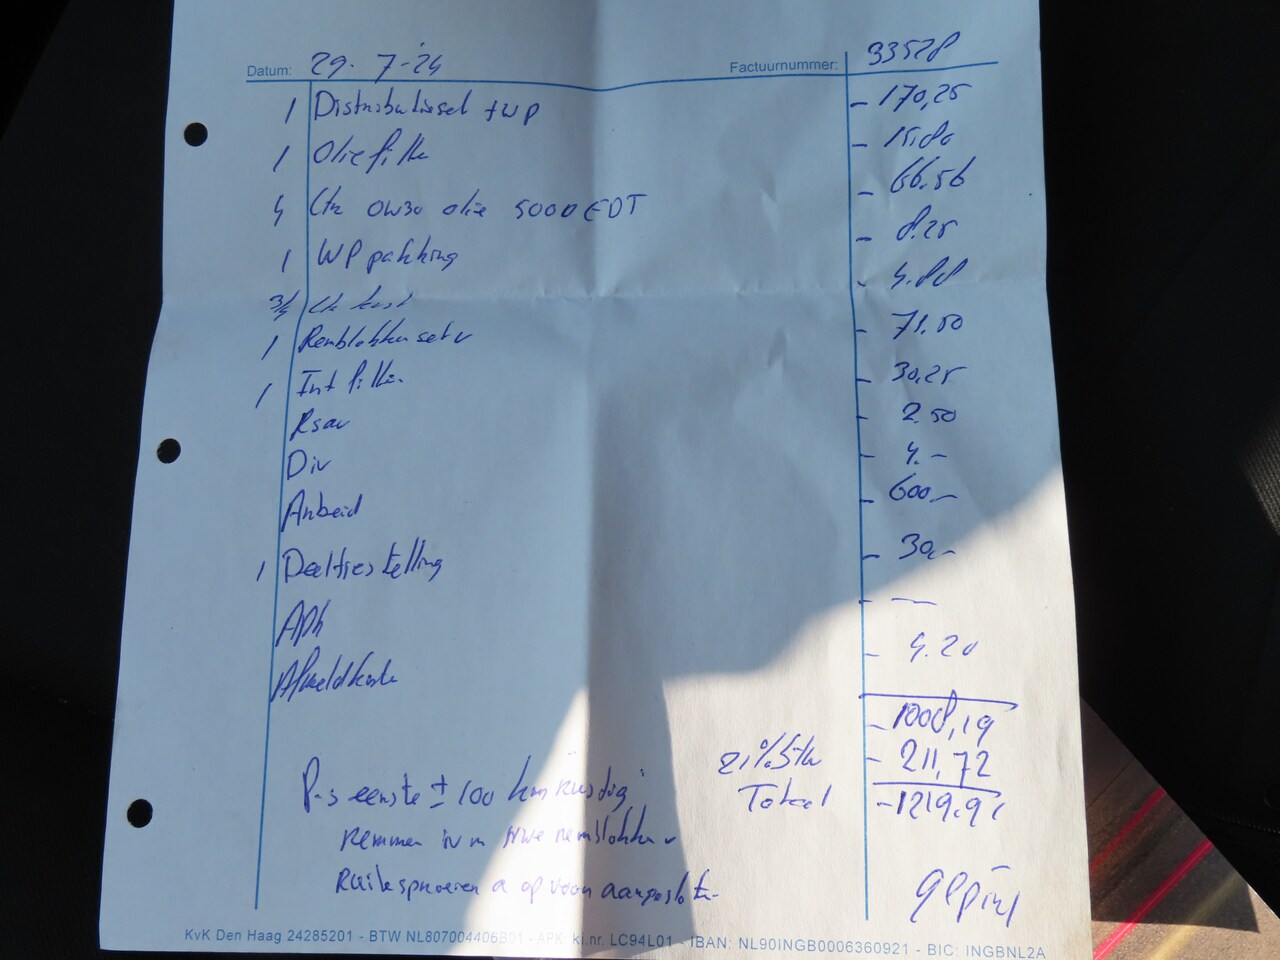 Datum: 29-7-'24 Factuurnummer: 33528
1 Distributieset + WP - 170,25
1 Oliefilter - 15.80
4 Ltr 0W30 olie 5000 EDT - 66.56
1 WP pakking - 8.25
3/4 Ltr - 4.88
1 Remblokken set v - 71.50
1 Int filter - 30,25
Rsav - 2.50
Div - 4.-
Arbeid - 600,-
1 Deeltjestelling - 30,-
APK - —
Afmeldkosten - 4.20
- 1008,19
21% Btw - 211,72
Totaal - 1219.91
P.s eerste ± 100 km rustig
remmen ivm nwe remblokken v
Ruitesproeren a op voor aangesloten
gepind
KvK Den Haag 24285201 - BTW NL807004406B01 - APK ki.nr. LC94L01 - IBAN: NL90INGB0006360921 - BIC: INGBNL2A